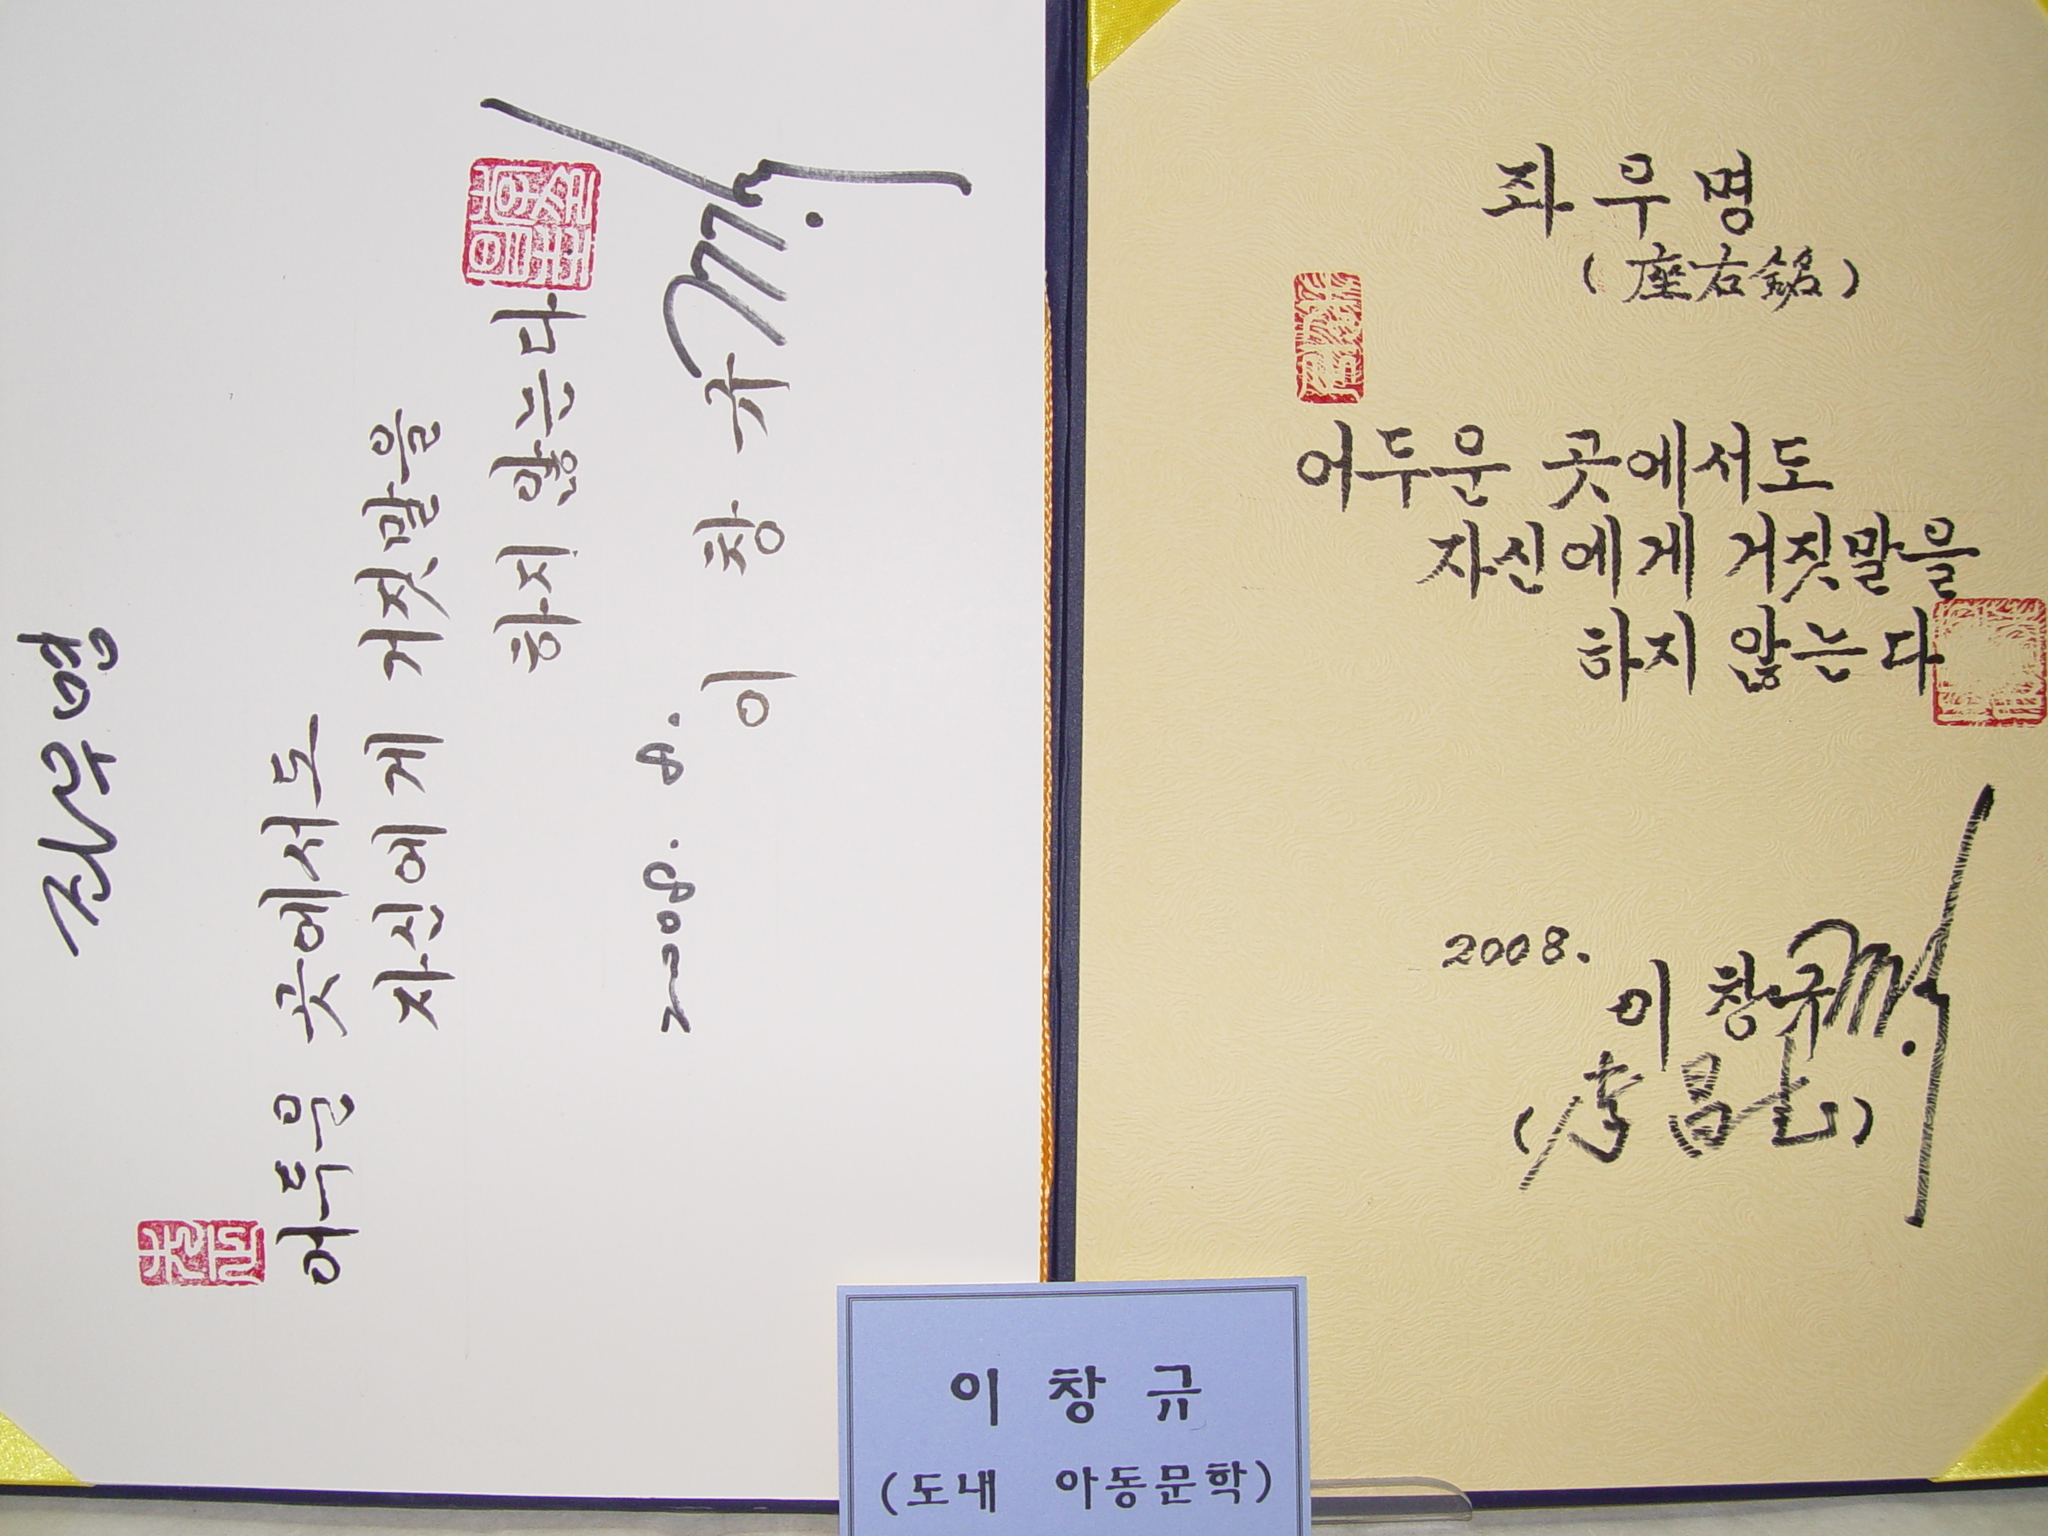 좌우명
어두운 곳에서도
자신에게 거짓말을
하지 않는다
2008. 8.
이 창 규
좌우명
(座右銘)
어두운 곳에서도
자신에게 거짓말을
하지 않는다
2008.
이 창규
이 창 규
(도내 아동문학)